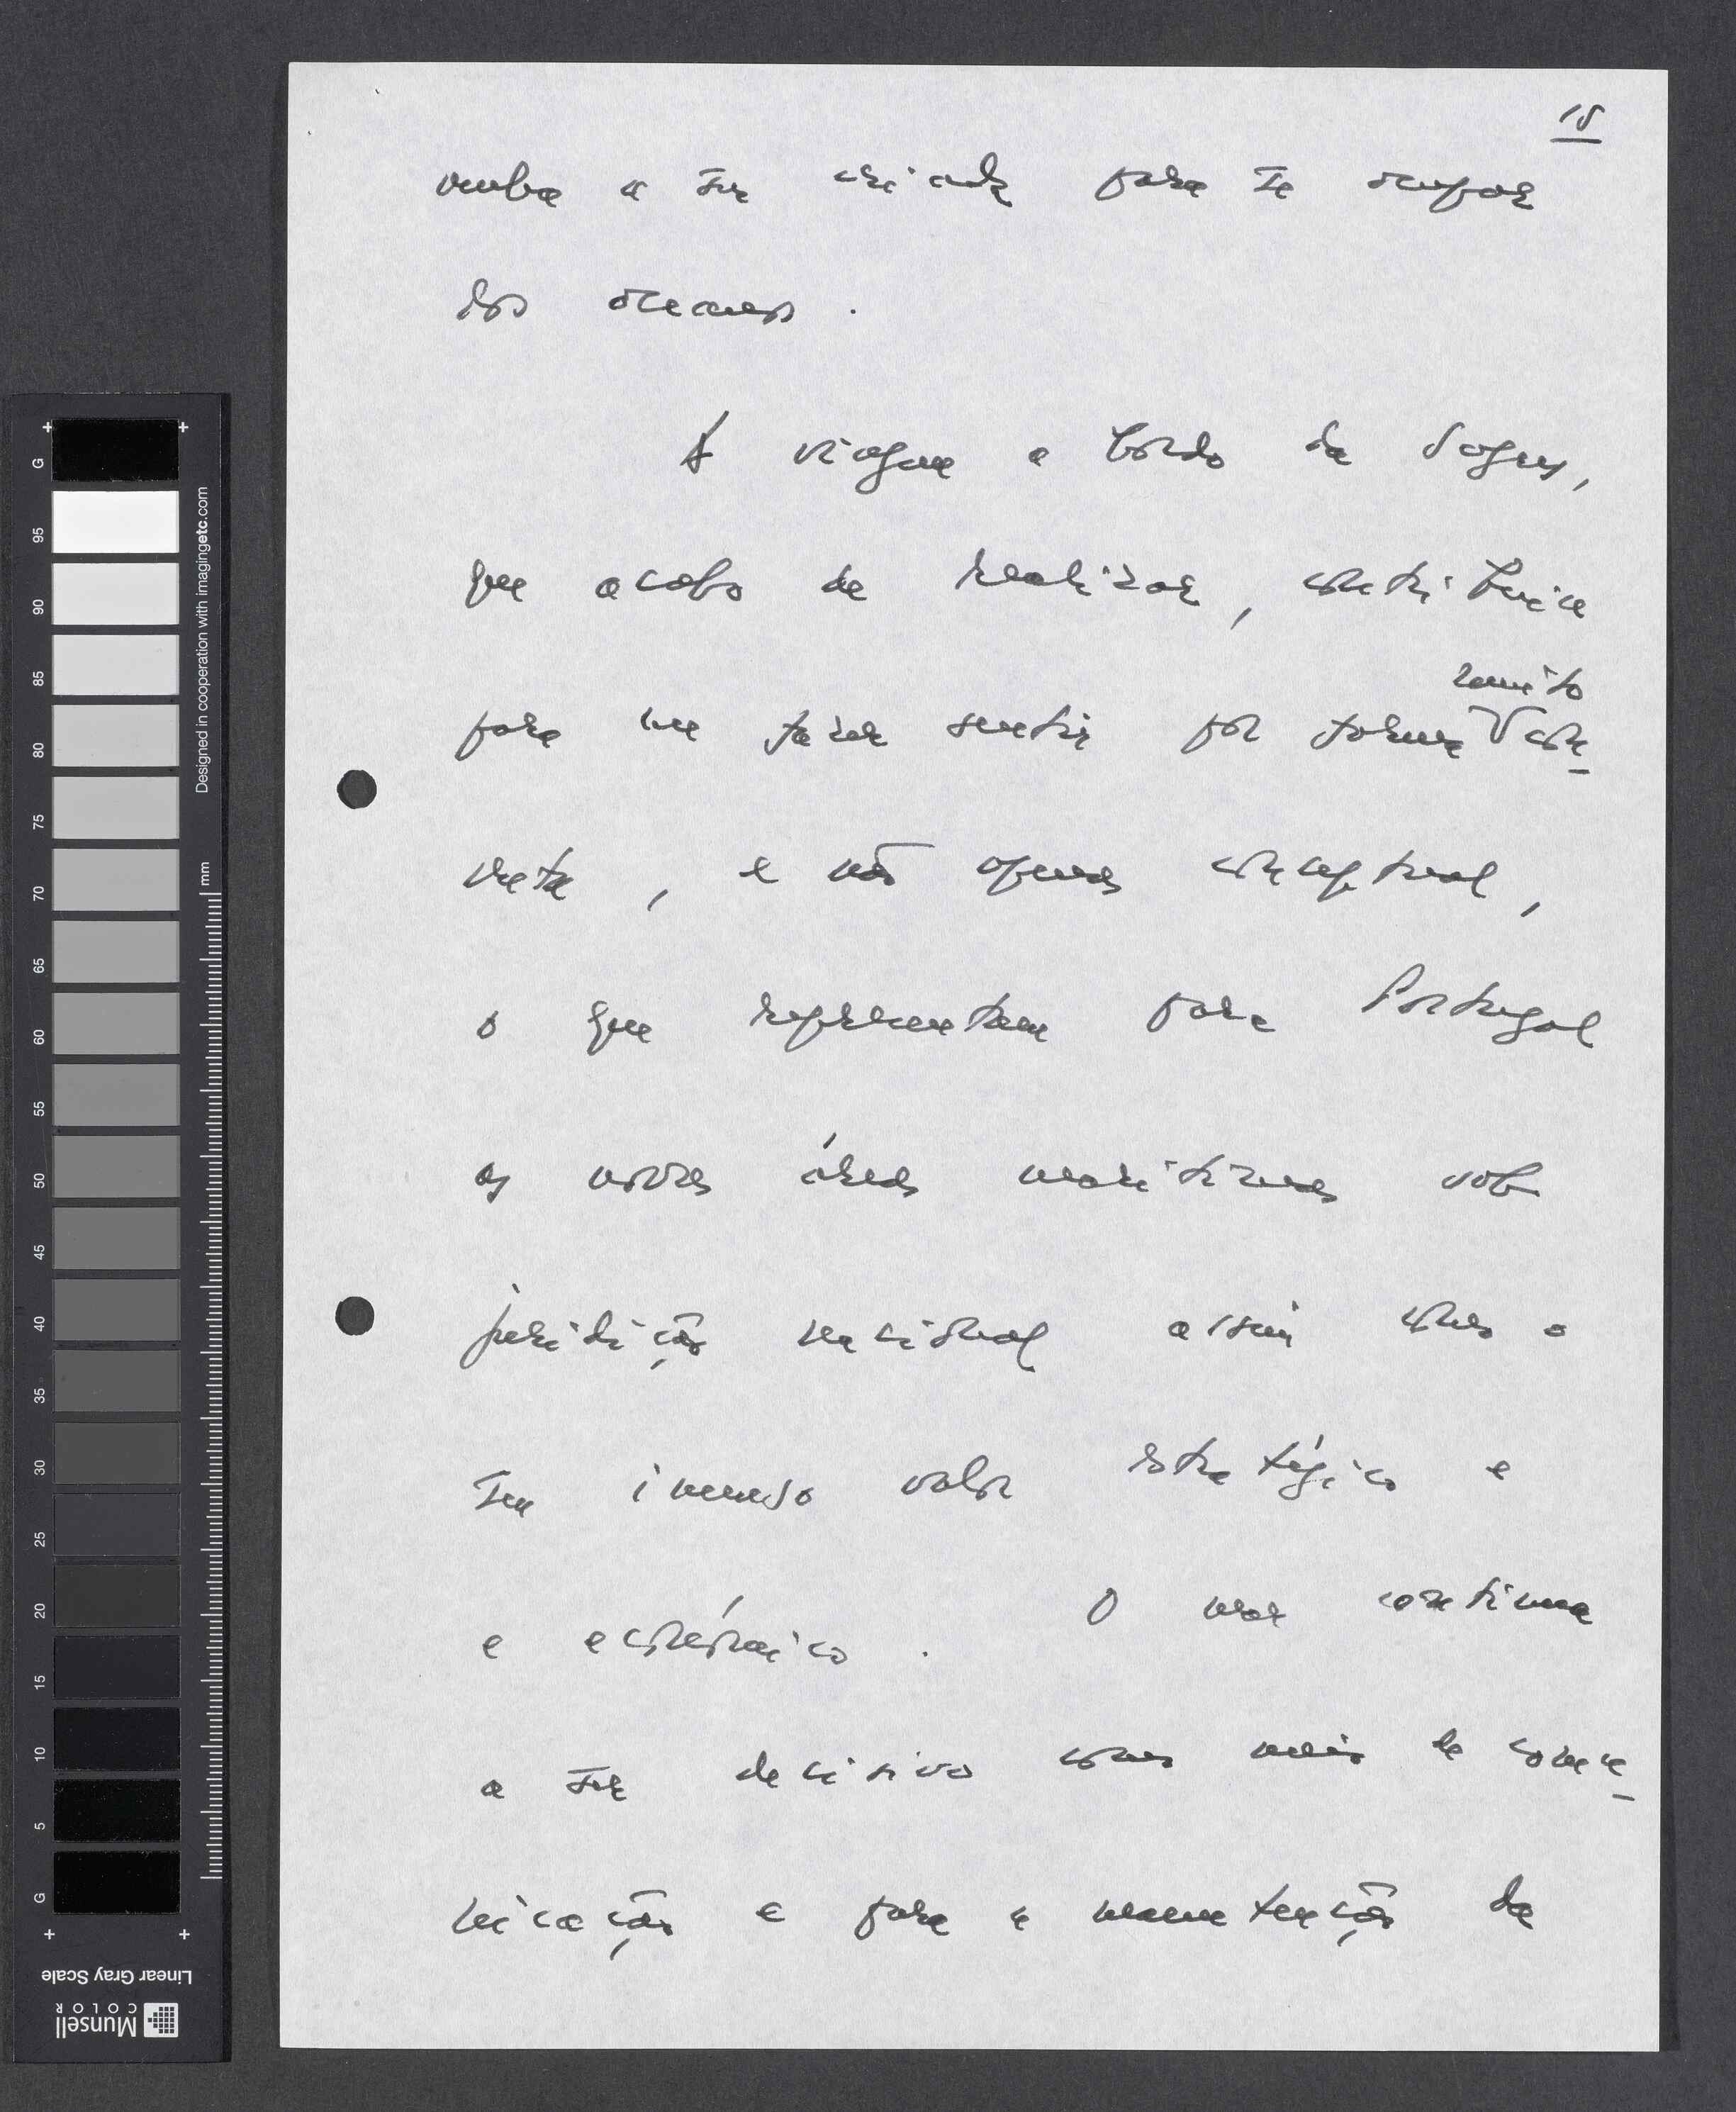 15
venha a ser criada para se ocupar
dos oceanos.
A viagem a bordo da Sagres,
que acabo de realizar, contribuiu
para me fazer sentir por forma muito con-
creta, e não apenas conceptual,
o que representam para Portugal
as nossas áreas marítimas sob
juridição nacional assim como o
seu imenso valor estratégico e
e económico. O mar continua
a ser decisivo como meio de comu-
nicação e para a manutenção da
G
95
90
85
80
75
70
65
60
55
50
45
40
35
30
25
20
15
10
5
G
mm
Designed in cooperation with imagingetc.com
Linear Gray Scale
Munsell
COLOR